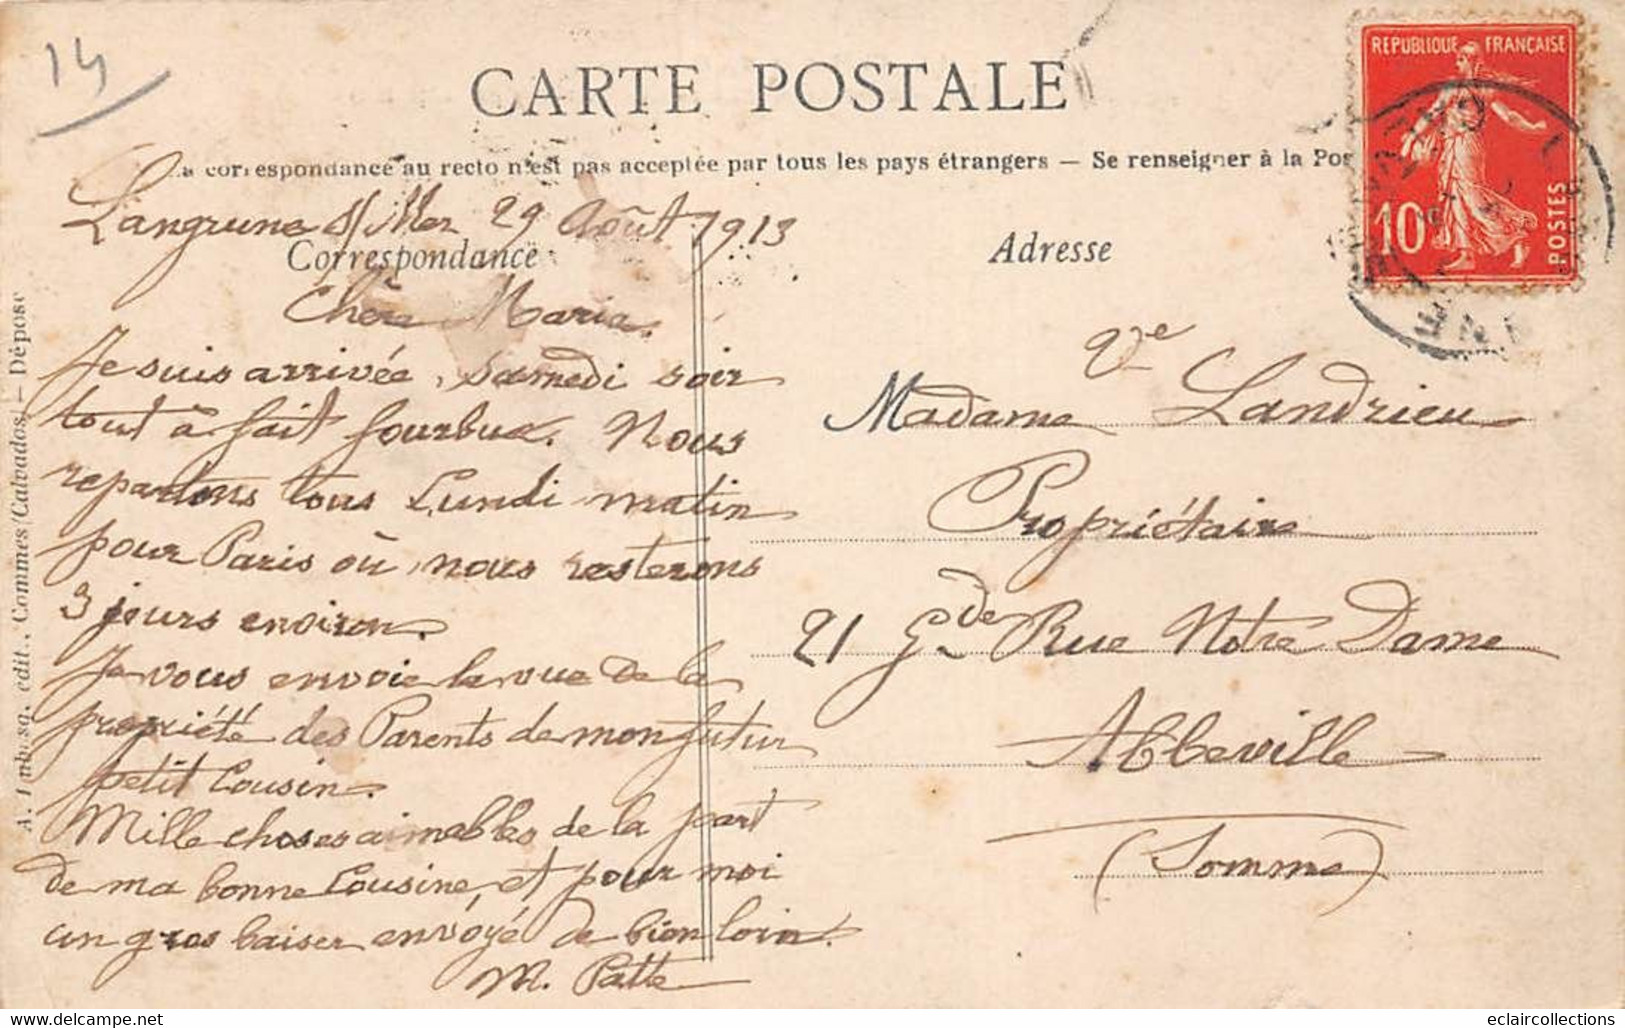 14
CARTE POSTALE
La correspondance au recto n'est pas acceptée par tous les pays étrangers — Se renseigner à la Pos
REPUBLIQUE FRANÇAISE
10
POSTES
Langrune s/ Mer 29 Août 1913
Correspondance
Adresse
Chère Maria.
Je suis arrivée, samedi soir
tout à fait fourbue. Nous
repartons tous Lundi matin
pour Paris où, nous resterons
3 jours environ.
Je vous envoie la vue de la
propriété des Parents de mon futur
petit Cousin.
Mille choses aimables de la part
de ma bonne Cousine, et pour moi
un gros baiser envoyé de bien loin.
M. Patte
Vve
Madame Landrieu
Propriétaire
21 Gde Rue Notre Dame
Abbeville
(Somme)
édit., Commes (Calvados) — Déposé
delcampe.net
eclaircollections